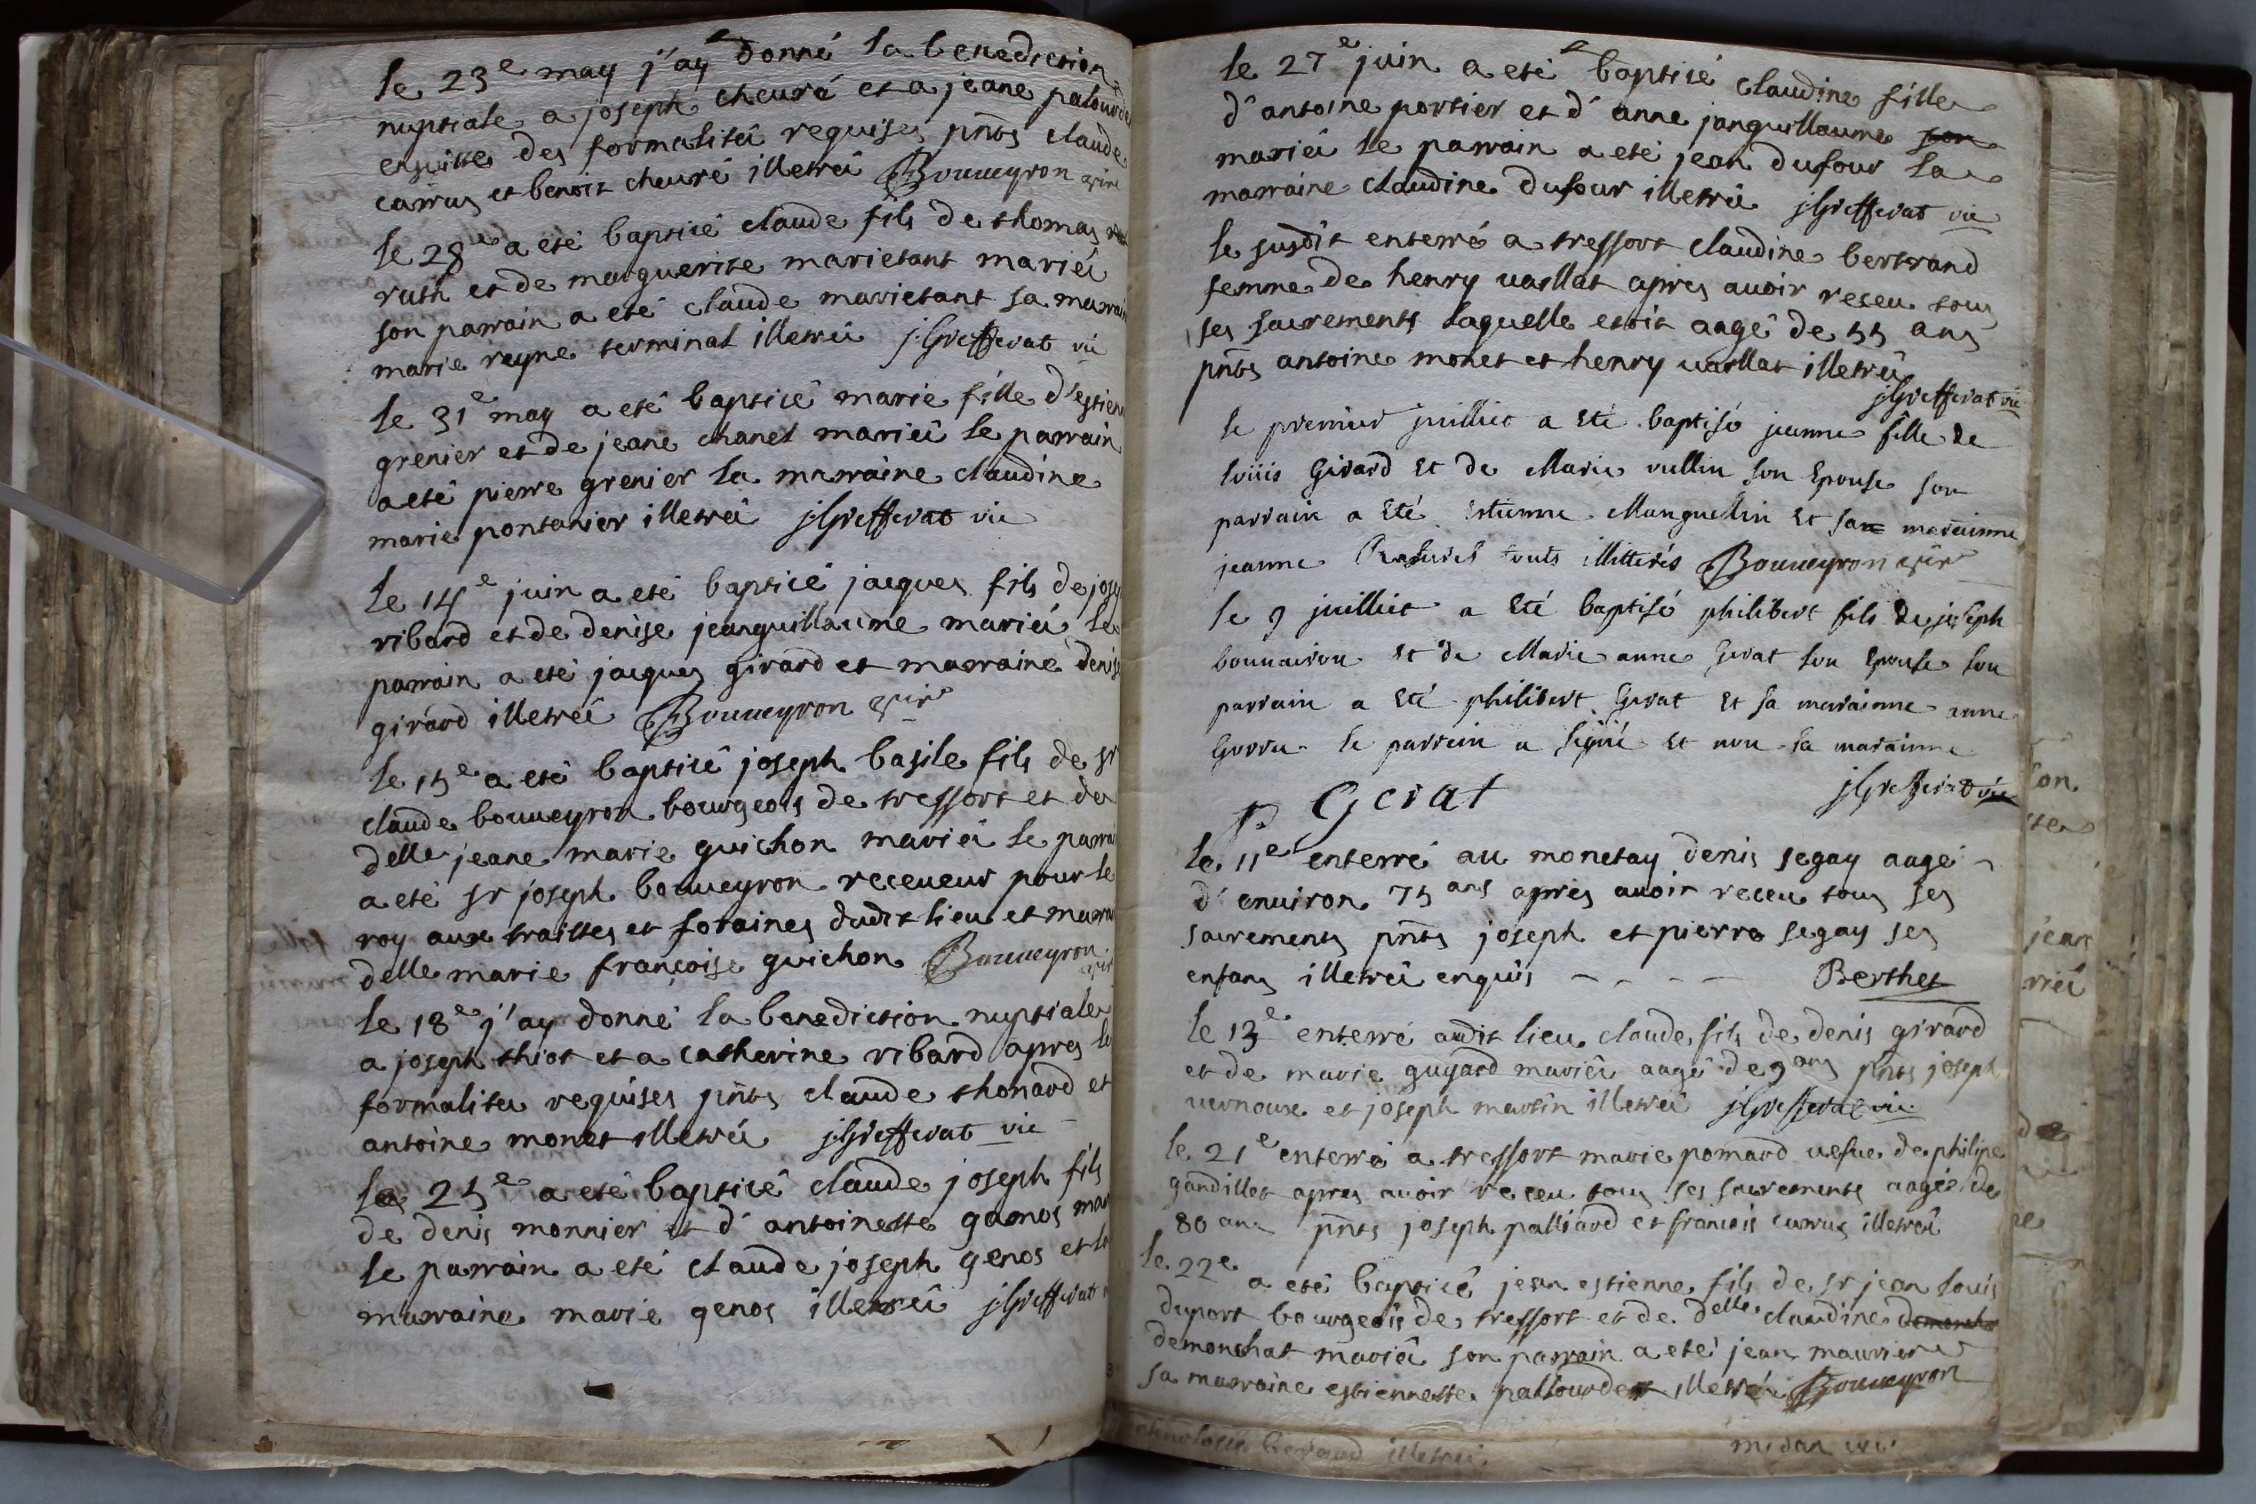 le 23e may j'ay donné la benediction
nuptiale a joseph cheuré et a jeane palourde
ensuitte des formalitéz requises pnts claude
carruz et benoit cheuré illetréz Bouueyron
le 28e a eté baptisé claude fils de thomas
ruth et de marguerite marietant mariéz
son parrain a eté claude marietant sa marrai
marie reyne terminal illetréz jGrefferat vic
le 31e may a eté baptisé marie fille d'estien
grenier et de jeane chanel mariéz le parrain
a eté pierre grenier la marraine claudine
marie pontanier illetréz jGrefferat vic
le 14e juin a eté baptisé jacques fils de jos
ribard et de denise jeanguillaume mariéz le
parrain a eté jacques girard et marraine denise
girard illetréz Bouueyron
le 15e a eté baptisé joseph basile fils de sr
claude bouueyron bourgeois de tressort et de
delle jeane marie guichon mariéz le parrai
a eté sr joseph bouueyron receueur pour le
roy aux traittes et foraines dudit lieu et marra
delle marie françoise guichon Bouueyron
le 18e j'ay donné la benediction nuptiale
a joseph thiot et a catherine ribard apres le
formalitéz requises pnts claude thonard et
antoine monet illetréz jGrefferat vic
le 25e a eté baptisé claude joseph fils
de denis monnier et d'antoinette genos mar
le parrain a eté claude joseph genos et la
marraine marie genos illetréz jGrefferat
le 27e juin a eté baptisé claudine fille
d'antoine portier et d'anne janguillaume son
mariéz le parrain a eté jean dufour la
marraine claudine dufour illetréz jGrefferat vic
le susdit enterré a tressort claudine bertrand
femme de henry uaillat apres auoir receu tous
ses sacrements laquelle etoit aagé de 55 ans
pnts antoine monet et henry uaillat illetréz
jGrefferat vic
le premier juilliet a Eté baptisé jeanne fille de
loüis Girard Et de Marie vullin son Epouse son
parrain a Eté Estienne Manguellin Et sa maraine
jeanne touts illitterés Bouueyron
le 9 juilliet a Eté baptisé philibert fils de joseph
bonnairon Et de Marie anne Gerat son Epouse son
parrain a Eté philibert Gerat Et sa maraine anne
Gorru le parrain a signé Et non la maraine
p Gerat jGrefferat vic
le 11e enterré au monetay denis segay aagé
d'enuiron 75 ans apres auoir receu tous ses
sacrements pnts joseph et pierre segay ses
enfans illetréz enquis Berthet
le 13e enterré audit lieu claude fils de denis girard
et de marie guyard mariéz aagé de 9 ans pnts joseph
uernoux et joseph martin illetréz jGrefferat vic
le 21e enterré a tressort marie pomard uefue de philipe
gandillet apres auoir receu tous ses sacrements aagée de
80 ans pnts joseph palliard et francois carruz illetréz
le 22e a eté baptisé jean estienne fils de sr jean louis
duport bourgeois de tressort et de delle claudine
demonchat mariéz son parrain a eté jean maurier
sa marraine estiennette pallourdet illetréz Bouueyron
bertrand illetréz